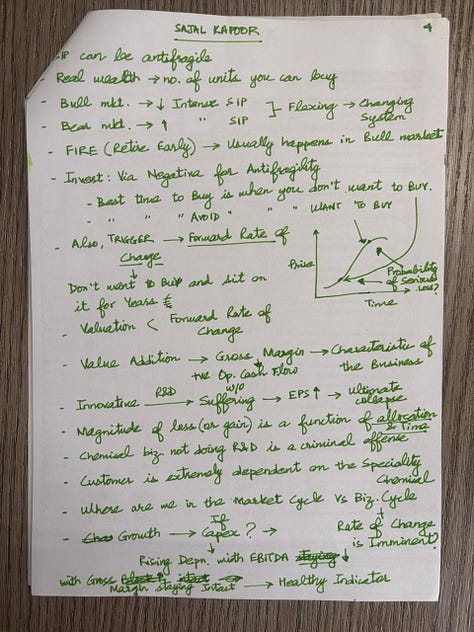 SAJAL KAPOOR
4
SIP can be antifragile
- Real wealth → no. of units you can buy
- Bull mkt. → ↓ Intense SIP
- Bear mkt. → ↑ " SIP
] Flexing → Changing System
- FIRE (Retire Early) → Usually happens in Bull market
- Invest: Via Negativa for Antifragility
- Best time to Buy is when you don't want to BUY.
- " " " AVOID " " " WANT TO BUY
- Also, TRIGGER → Forward Rate of Change
↓
Don't want to Buy and sit on
it for Years
Price
Time
Probability of Serious Loss?
- Valuation < Forward Rate of Change
- Value Addition → Gross Margin → Characteristic of the Business
+ve Op. Cash Flow
- Innovative R&D → Suffering w/o → EPS ↑ → Ultimate collapse
- Magnitude of loss (or gain) is a function of allocation & Time
- Chemical biz. not doing R&D is a criminal offense
- Customer is extremely dependent on the Speciality Chemical
- Where are we in the Market Cycle Vs Biz. Cycle
↓
Rate of Change is Imminent?
- Growth → If Capex? →
↓
Rising Depn. with EBITDA ↓
with Gross Margin staying Intact → Healthy Indicator